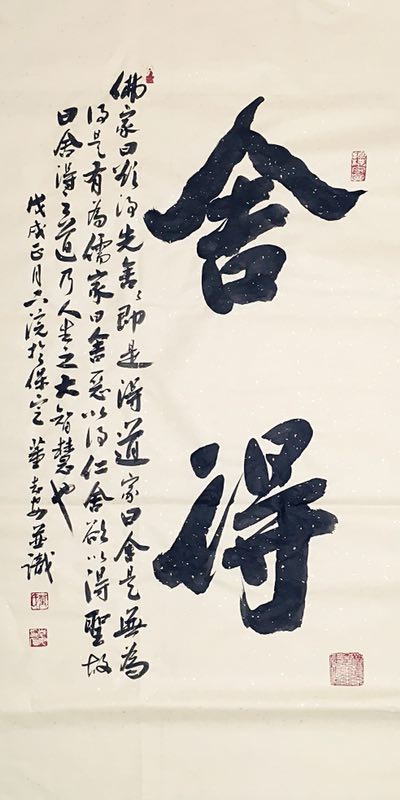 舍得
佛家曰欲得先舍舍即是得道家曰舍是無為
得是有為儒家曰舍惡以得仁舍欲以得聖故
曰舍得之道乃人生之大智慧也
戊戌正月六浣於保定 董志安並識